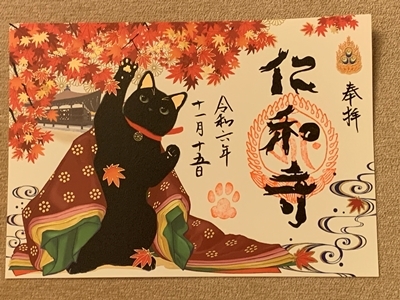 奉拝
仁和寺
令和六年
十一月十五日